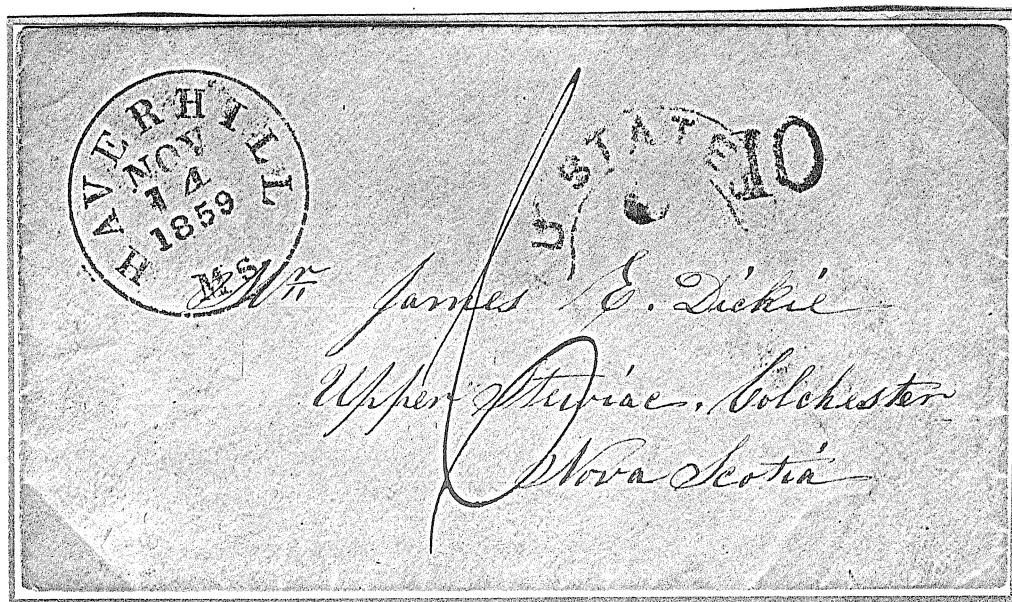 HAVERHILL
NOV
14
1859
MS
U STATE
10
6
Mr James E. Dickie
Upper Stewiac, Colchester
Nova Scotia